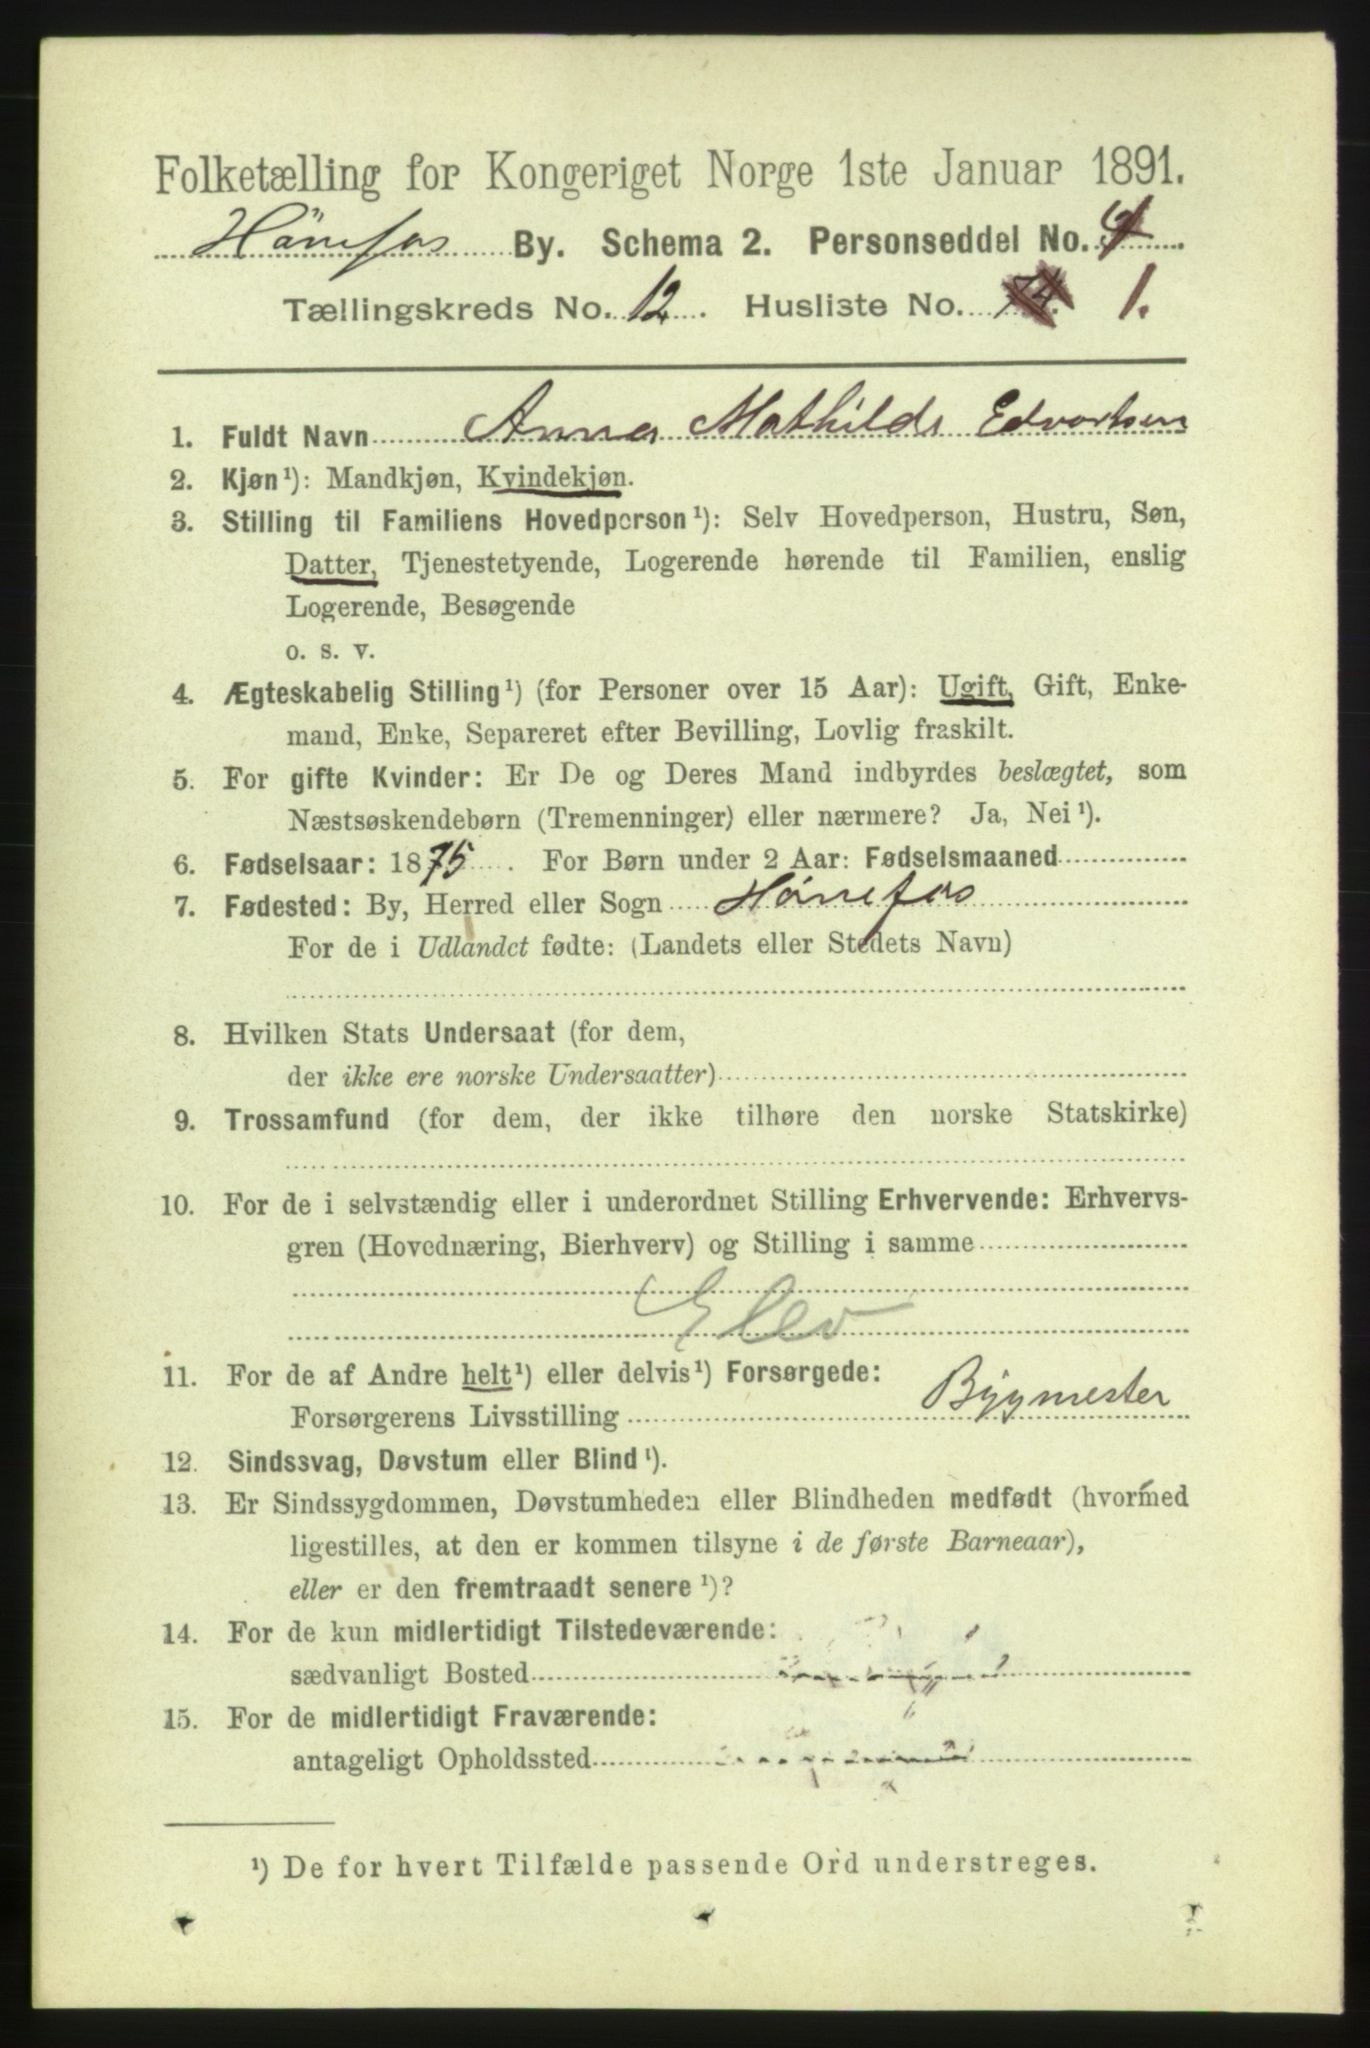 Folketælling for Kongeriget Norge 1ste Januar 1891.
Hönefos By. Schema 2. Personseddel No.
Tællingskreds No. 12. Husliste No. 1.
1. Fuldt Navn Anna Mathilde Edvartsen
2. Kjøn¹): Mandkjøn, Kvindekjøn.
3. Stilling til Familiens Hovedperson¹): Selv Hovedperson, Hustru, Søn,
Datter, Tjenestetyende, Logerende hørende til Familien, enslig
Logerende, Besøgende
o. s. v.
4. Ægteskabelig Stilling¹) (for Personer over 15 Aar): Ugift, Gift, Enke-
mand, Enke, Separeret efter Bevilling, Lovlig fraskilt.
5. For gifte Kvinder: Er De og Deres Mand indbyrdes beslægtet, som
Næstsøskendebørn (Tremenninger) eller nærmere? Ja, Nei¹).
6. Fødselsaar: 1875. For Børn under 2 Aar: Fødselsmaaned
7. Fødested: By, Herred eller Sogn Hönefos
For de i Udlandet fødte: (Landets eller Stedets Navn)
8. Hvilken Stats Undersaat (for dem,
der ikke ere norske Undersaatter)
9. Trossamfund (for dem, der ikke tilhøre den norske Statskirke)
10. For de i selvstændig eller i underordnet Stilling Erhvervende: Erhvervs-
gren (Hovednæring, Bierhverv) og Stilling i samme
Elev
11. For de af Andre helt¹) eller delvis¹) Forsørgede:
Forsørgerens Livsstilling Bygmester
12. Sindssvag, Døvstum eller Blind¹).
13. Er Sindssygdommen, Døvstumheden eller Blindheden medfødt (hvormed
ligestilles, at den er kommen tilsyne i de første Barneaar),
eller er den fremtraadt senere¹)?
14. For de kun midlertidigt Tilstedeværende:
sædvanligt Bosted
15. For de midlertidigt Fraværende:
antageligt Opholdssted
¹) De for hvert Tilfælde passende Ord understreges.